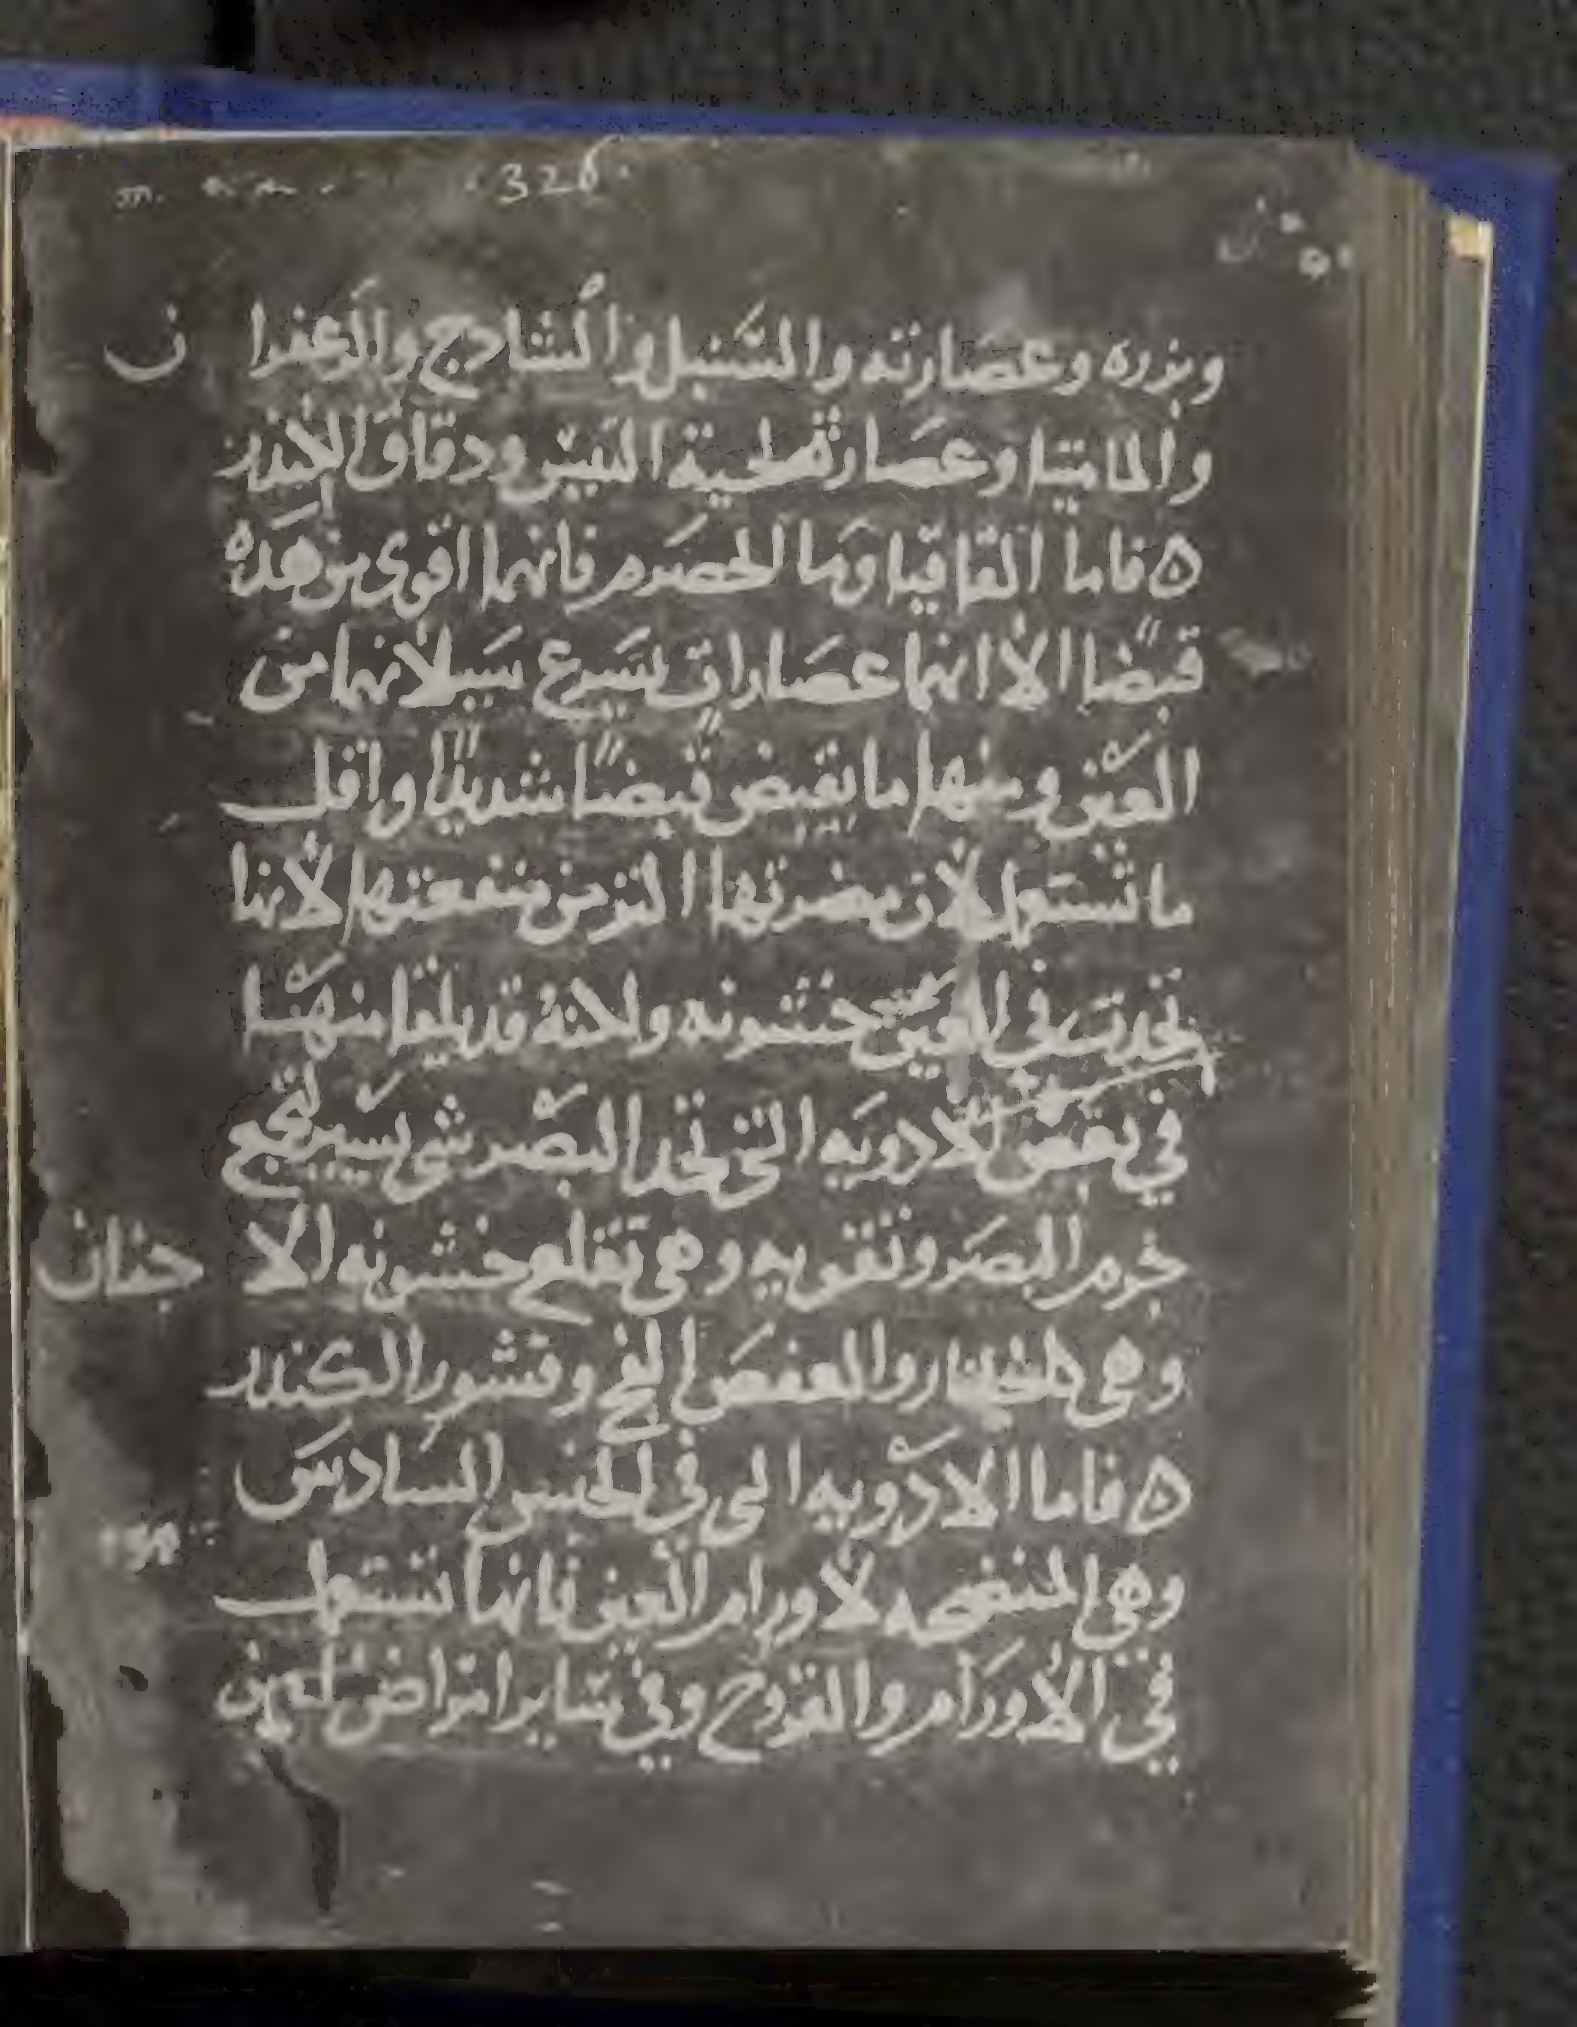 326
وبزره وعصارته والسنبل والشادج والزعفرا ن
والماميثا وعصارة لحية التيس ودقاق الكندر
ه فاما القاقيا وما الحصرم فانهما اقوى من هذه
قبضا الا انهما عصارات يسرع سيلانهما من
العين ومنها ما يقبض قبضا شديدا واقل
ما تستعمل لان مضرتها اكثر من منفعتها لانها
تحدث في العين خشونه ولانه قد يلقا منها
في بعض الادويه التي تحد البصر شي يسير لتجمع
جرم البصر وتقويه وهي تقلع خشونه الا جفان
وهي الجلنار والعفص الفج وقشور الكندر
ه فاما الادويه التي في الجنس السادس
وهي المنضجه لاورام العين فانها تستعمل
في الاورام والقروح وفي ساير امراض العين